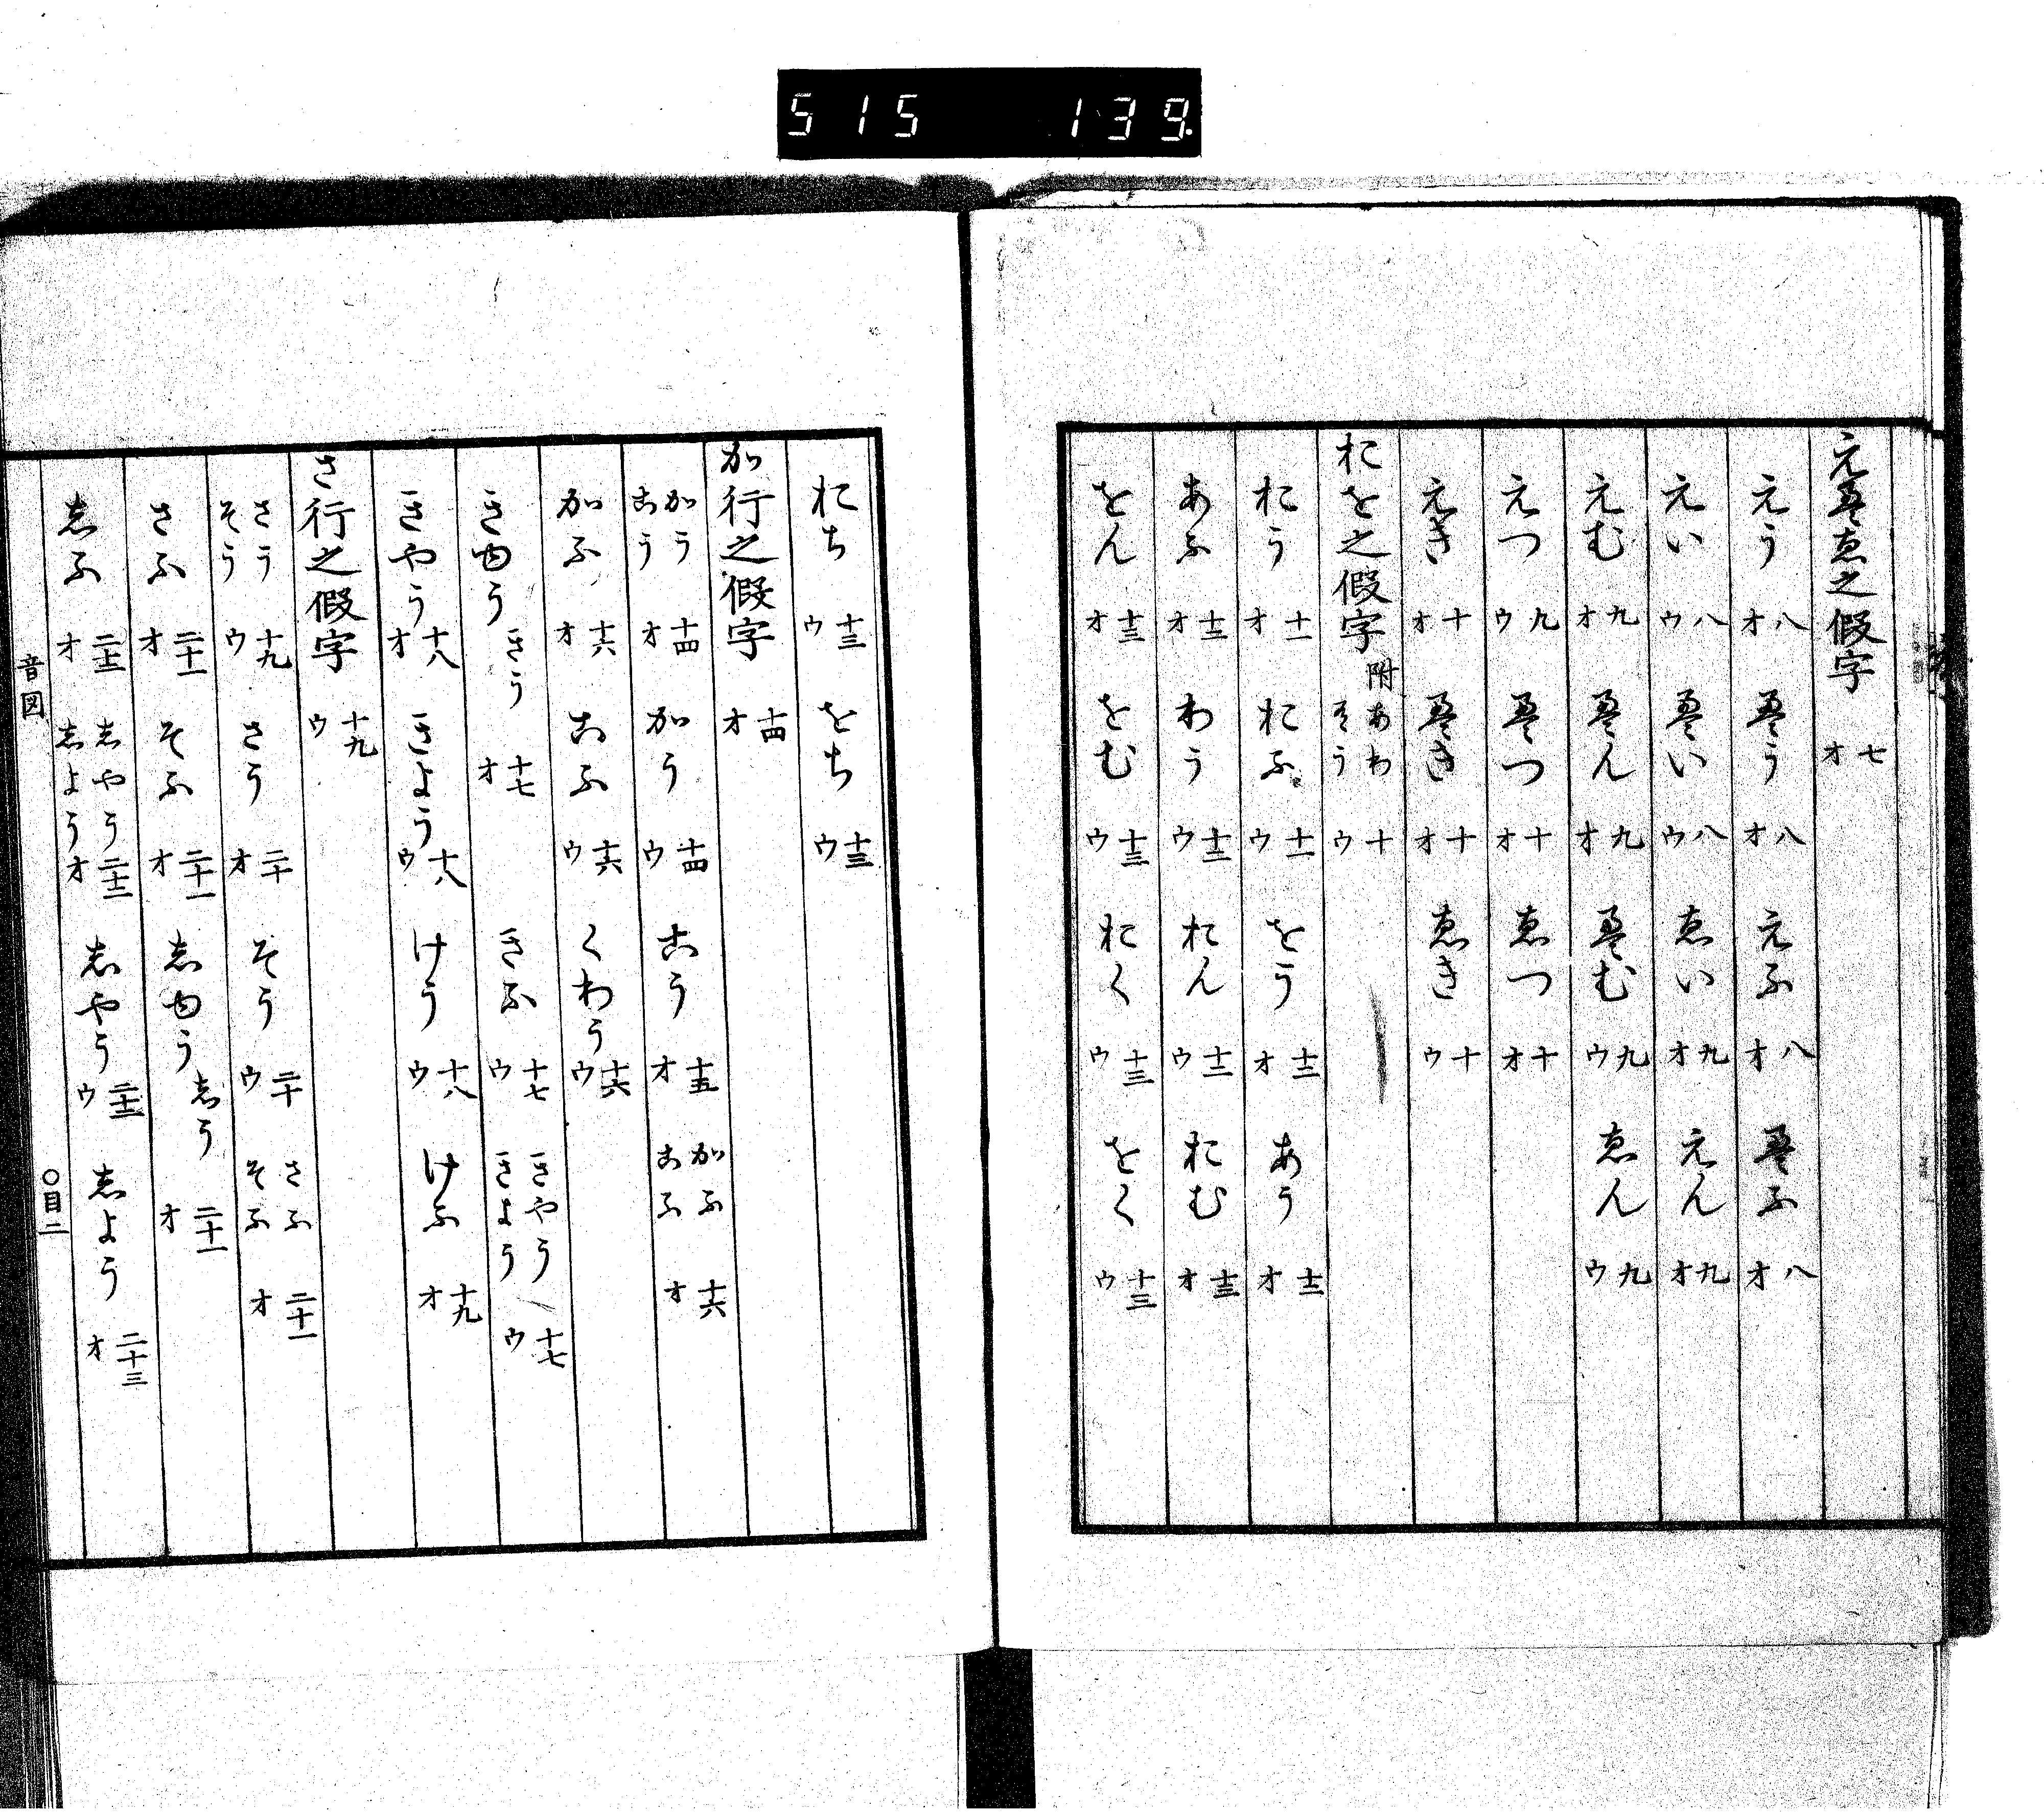 515 139.
えゑ之假字 七オ
えう 八オ う 八オ えふ 八オ ふ 八オ
えい 八ウ い 八ウ ゑい 九オ えん 九オ
えむ 九オ ん 九オ む 九ウ ゑん 九ウ
えつ 九ウ つ 十オ ゑつ 十オ
えき 十オ き 十オ ゑき 十ウ
おを之假字 附 あわ う 十ウ
おう 十一オ おふ 十一ウ をう 十二オ あう 十二オ
あふ 十二オ わう 十二ウ おん 十二ウ おむ 十三オ
をん 十三オ をむ 十三ウ おく 十三ウ をく 十三ウ
おち 十三ウ をち 十三ウ
か行之假字 十四オ
かう こう 十四オ かう 十四ウ こう 十五オ かふ こふ 十六オ
かふ 十六オ こふ 十六ウ くわう 十六ウ
きゆう きう 十七オ きふ 十七ウ きやう きよう 十七ウ
きやう 十八オ きよう 十八ウ けう 十八ウ けふ 十九オ
さ行之假字 十九ウ
さう そう 十九ウ さう 二十オ そう 二十ウ さふ そふ 二十一オ
さふ 二十一オ そふ 二十一オ しゆう しう 二十一オ
しふ 二十二オ しやう しよう 二十二オ しやう 二十二ウ しよう 二十三オ
音図 〇目二